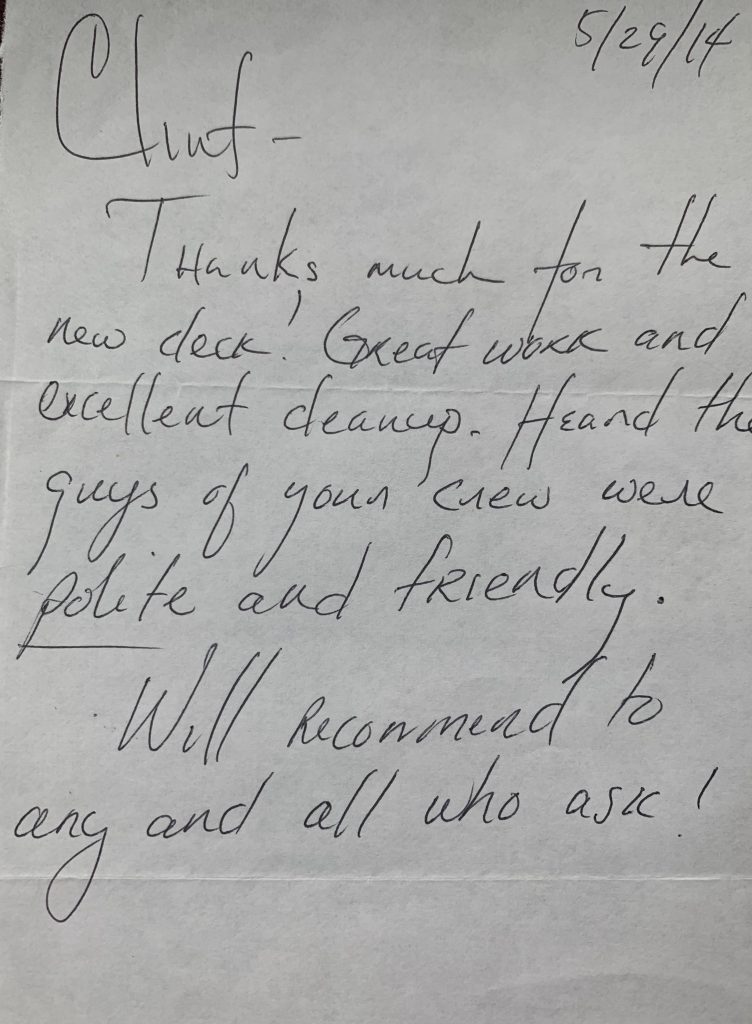 5/29/14
Clint -
Thanks much for the
new deck! Great work and
excellent cleanup. Heard the
guys of your crew were
polite and friendly.
Will recommend to
any and all who ask!